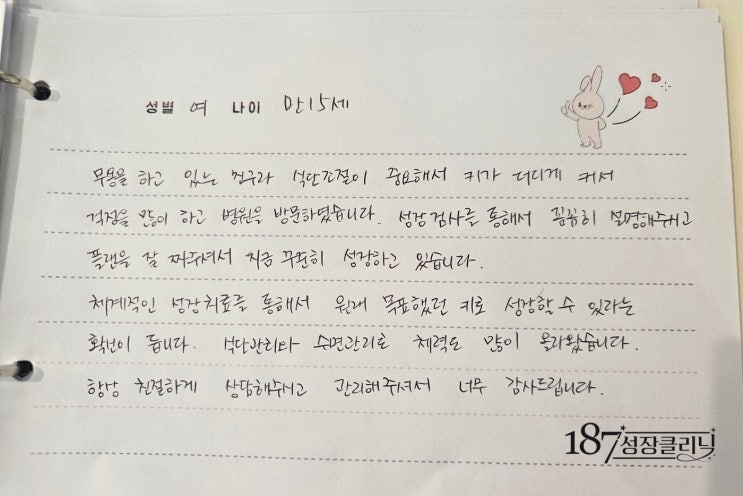 성별 여 나이 만15세
무용을 하고 있는 친구라 식단조절이 중요해서 키가 더디게 커서
걱정을 많이 하고 병원을 방문하였습니다. 성장검사를 통해서 꼼꼼히 설명해주시고
플랜을 잘 짜주셔서 지금 꾸준히 성장하고 있습니다.
체계적인 성장치료를 통해서 원래 목표했던 키로 성장할 수 있다는
확신이 듭니다. 식단관리와 수면관리로 체력도 많이 올라왔습니다.
항상 친절하게 상담해주시고 관리해주셔서 너무 감사드립니다.
187성장클리닉